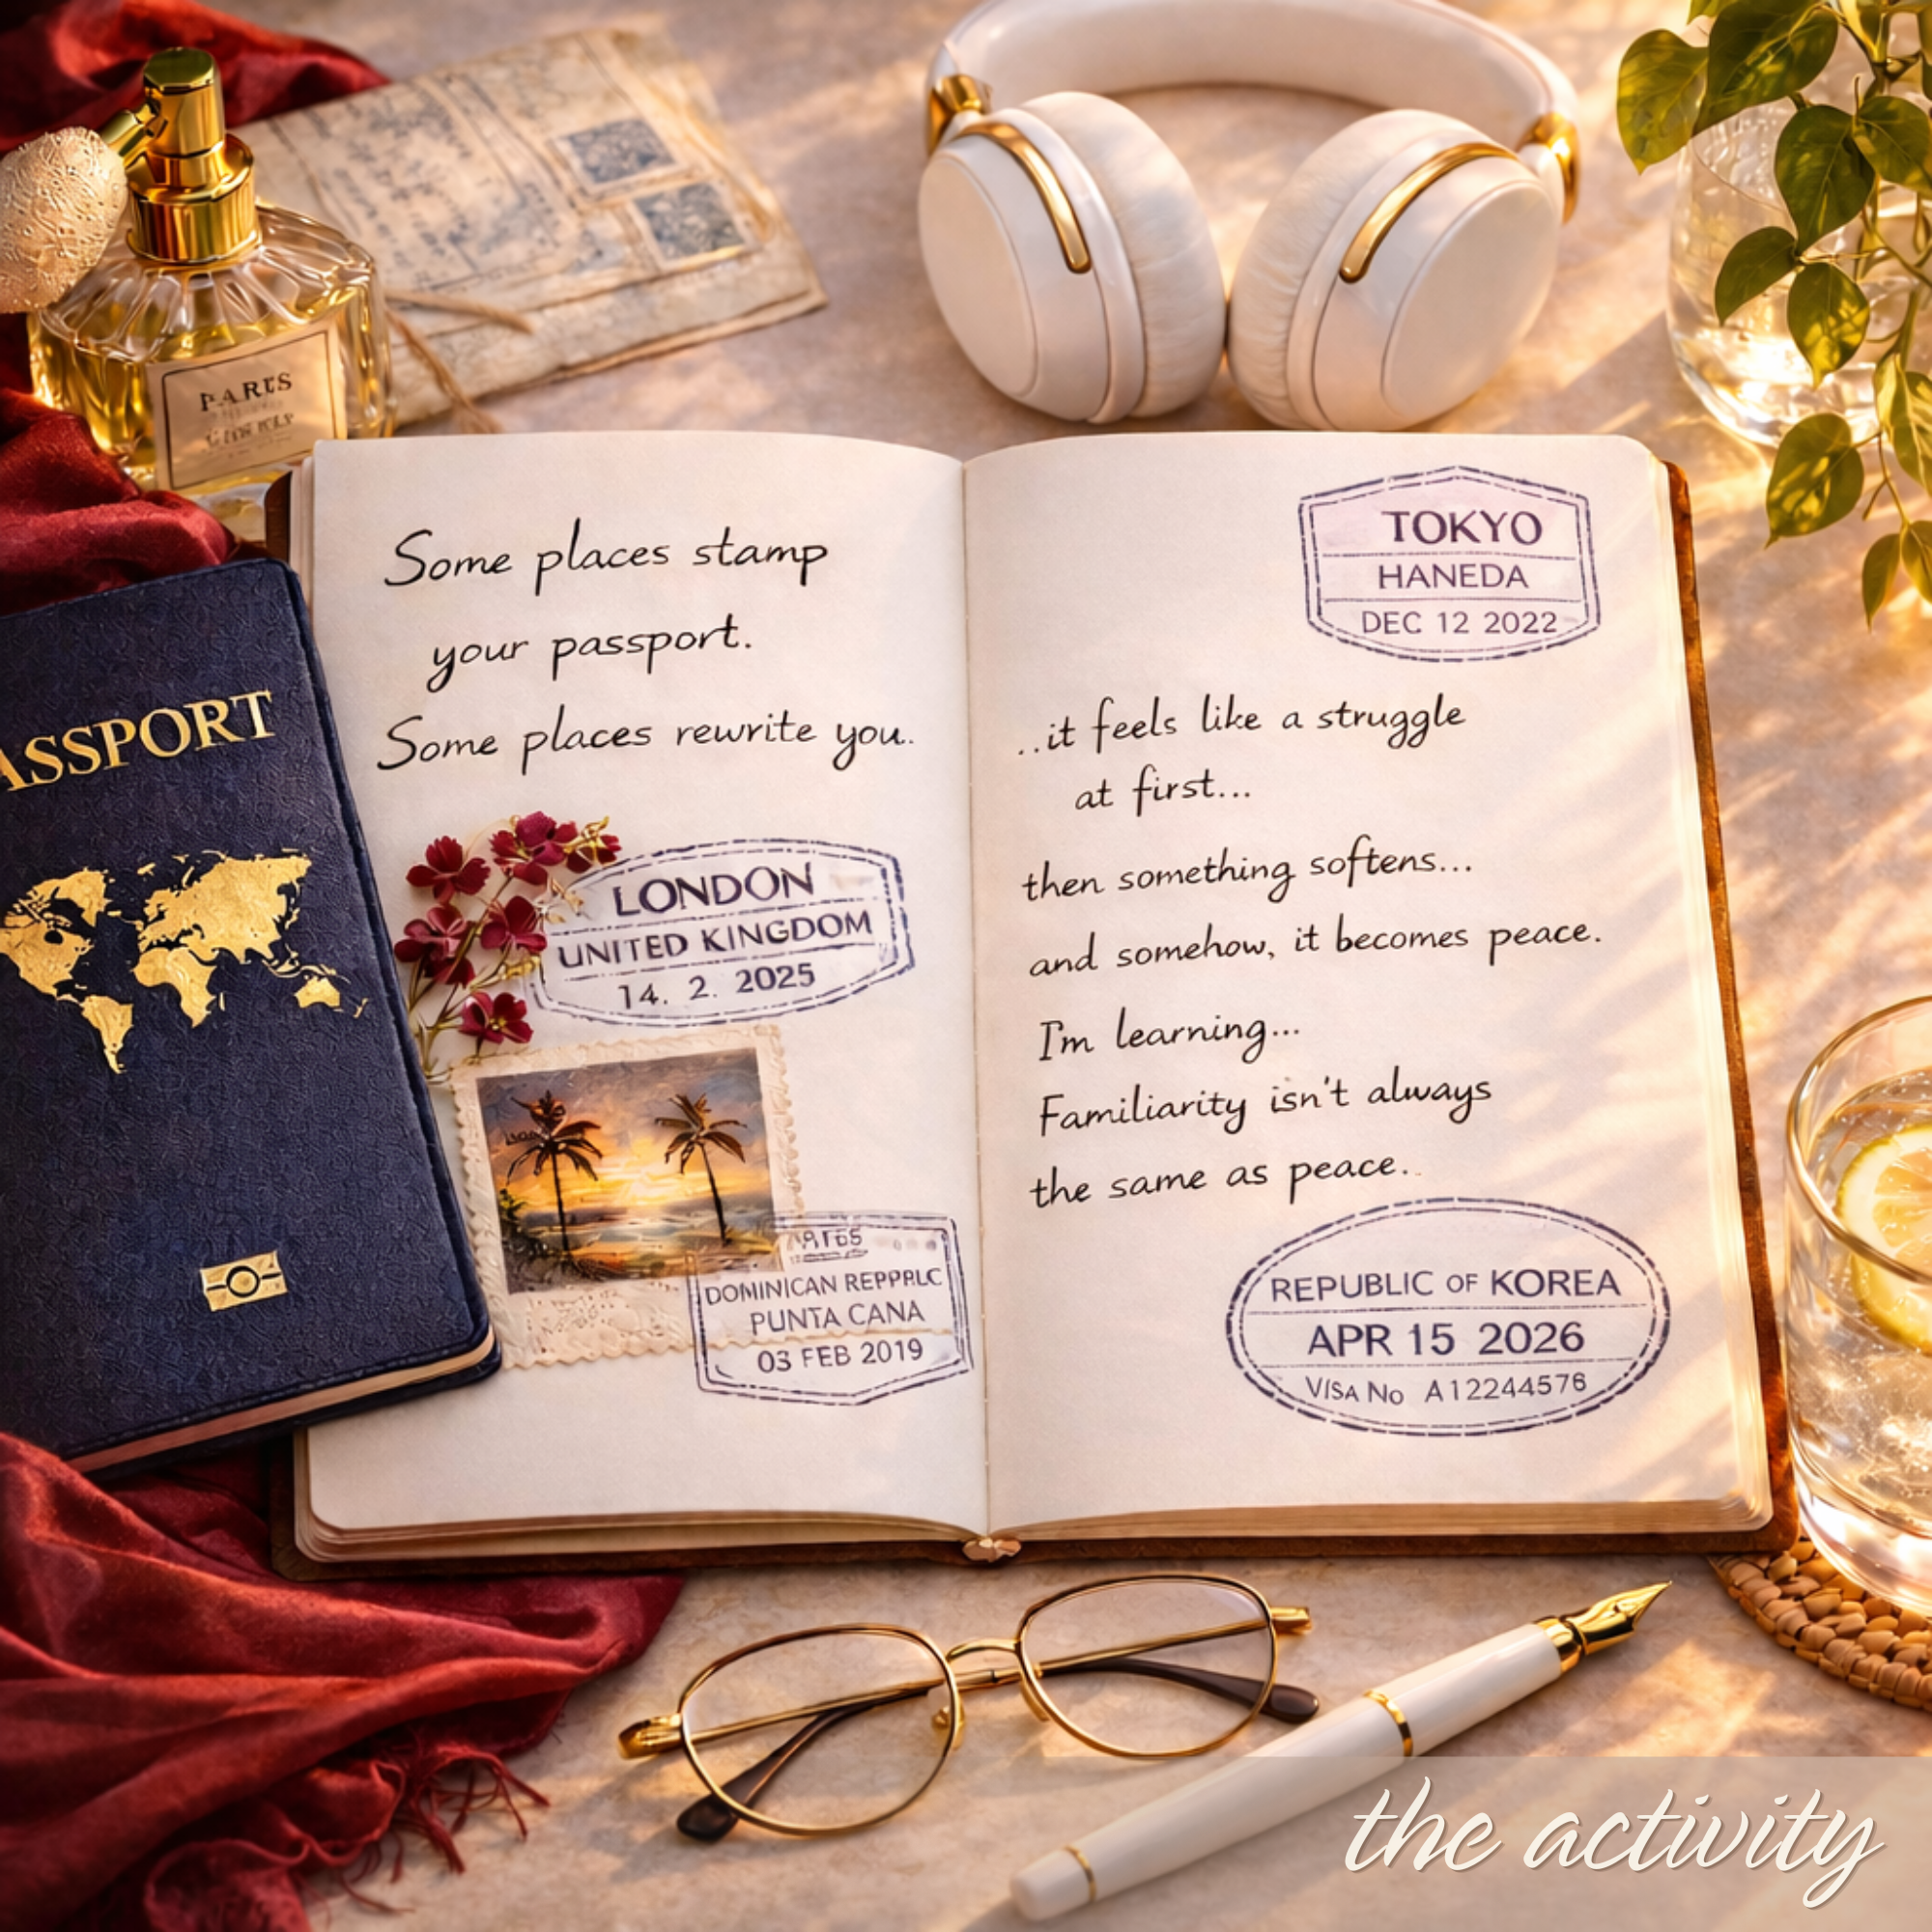 PARIS
ASSPORT
Some places stamp
your passport.
Some places rewrite you..
LONDON
UNITED KINGDOM
14. 2. 2025
DOMINICAN REPPRLC
PUNTA CANA
03 FEB 2019
TOKYO
HANEDA
DEC 12 2022
..it feels like a struggle
at first...
then something softens...
and somehow, it becomes peace.
I'm learning...
Familiarity isn't always
the same as peace..
REPUBLIC OF KOREA
APR 15 2026
VISA No A12244576
the activity